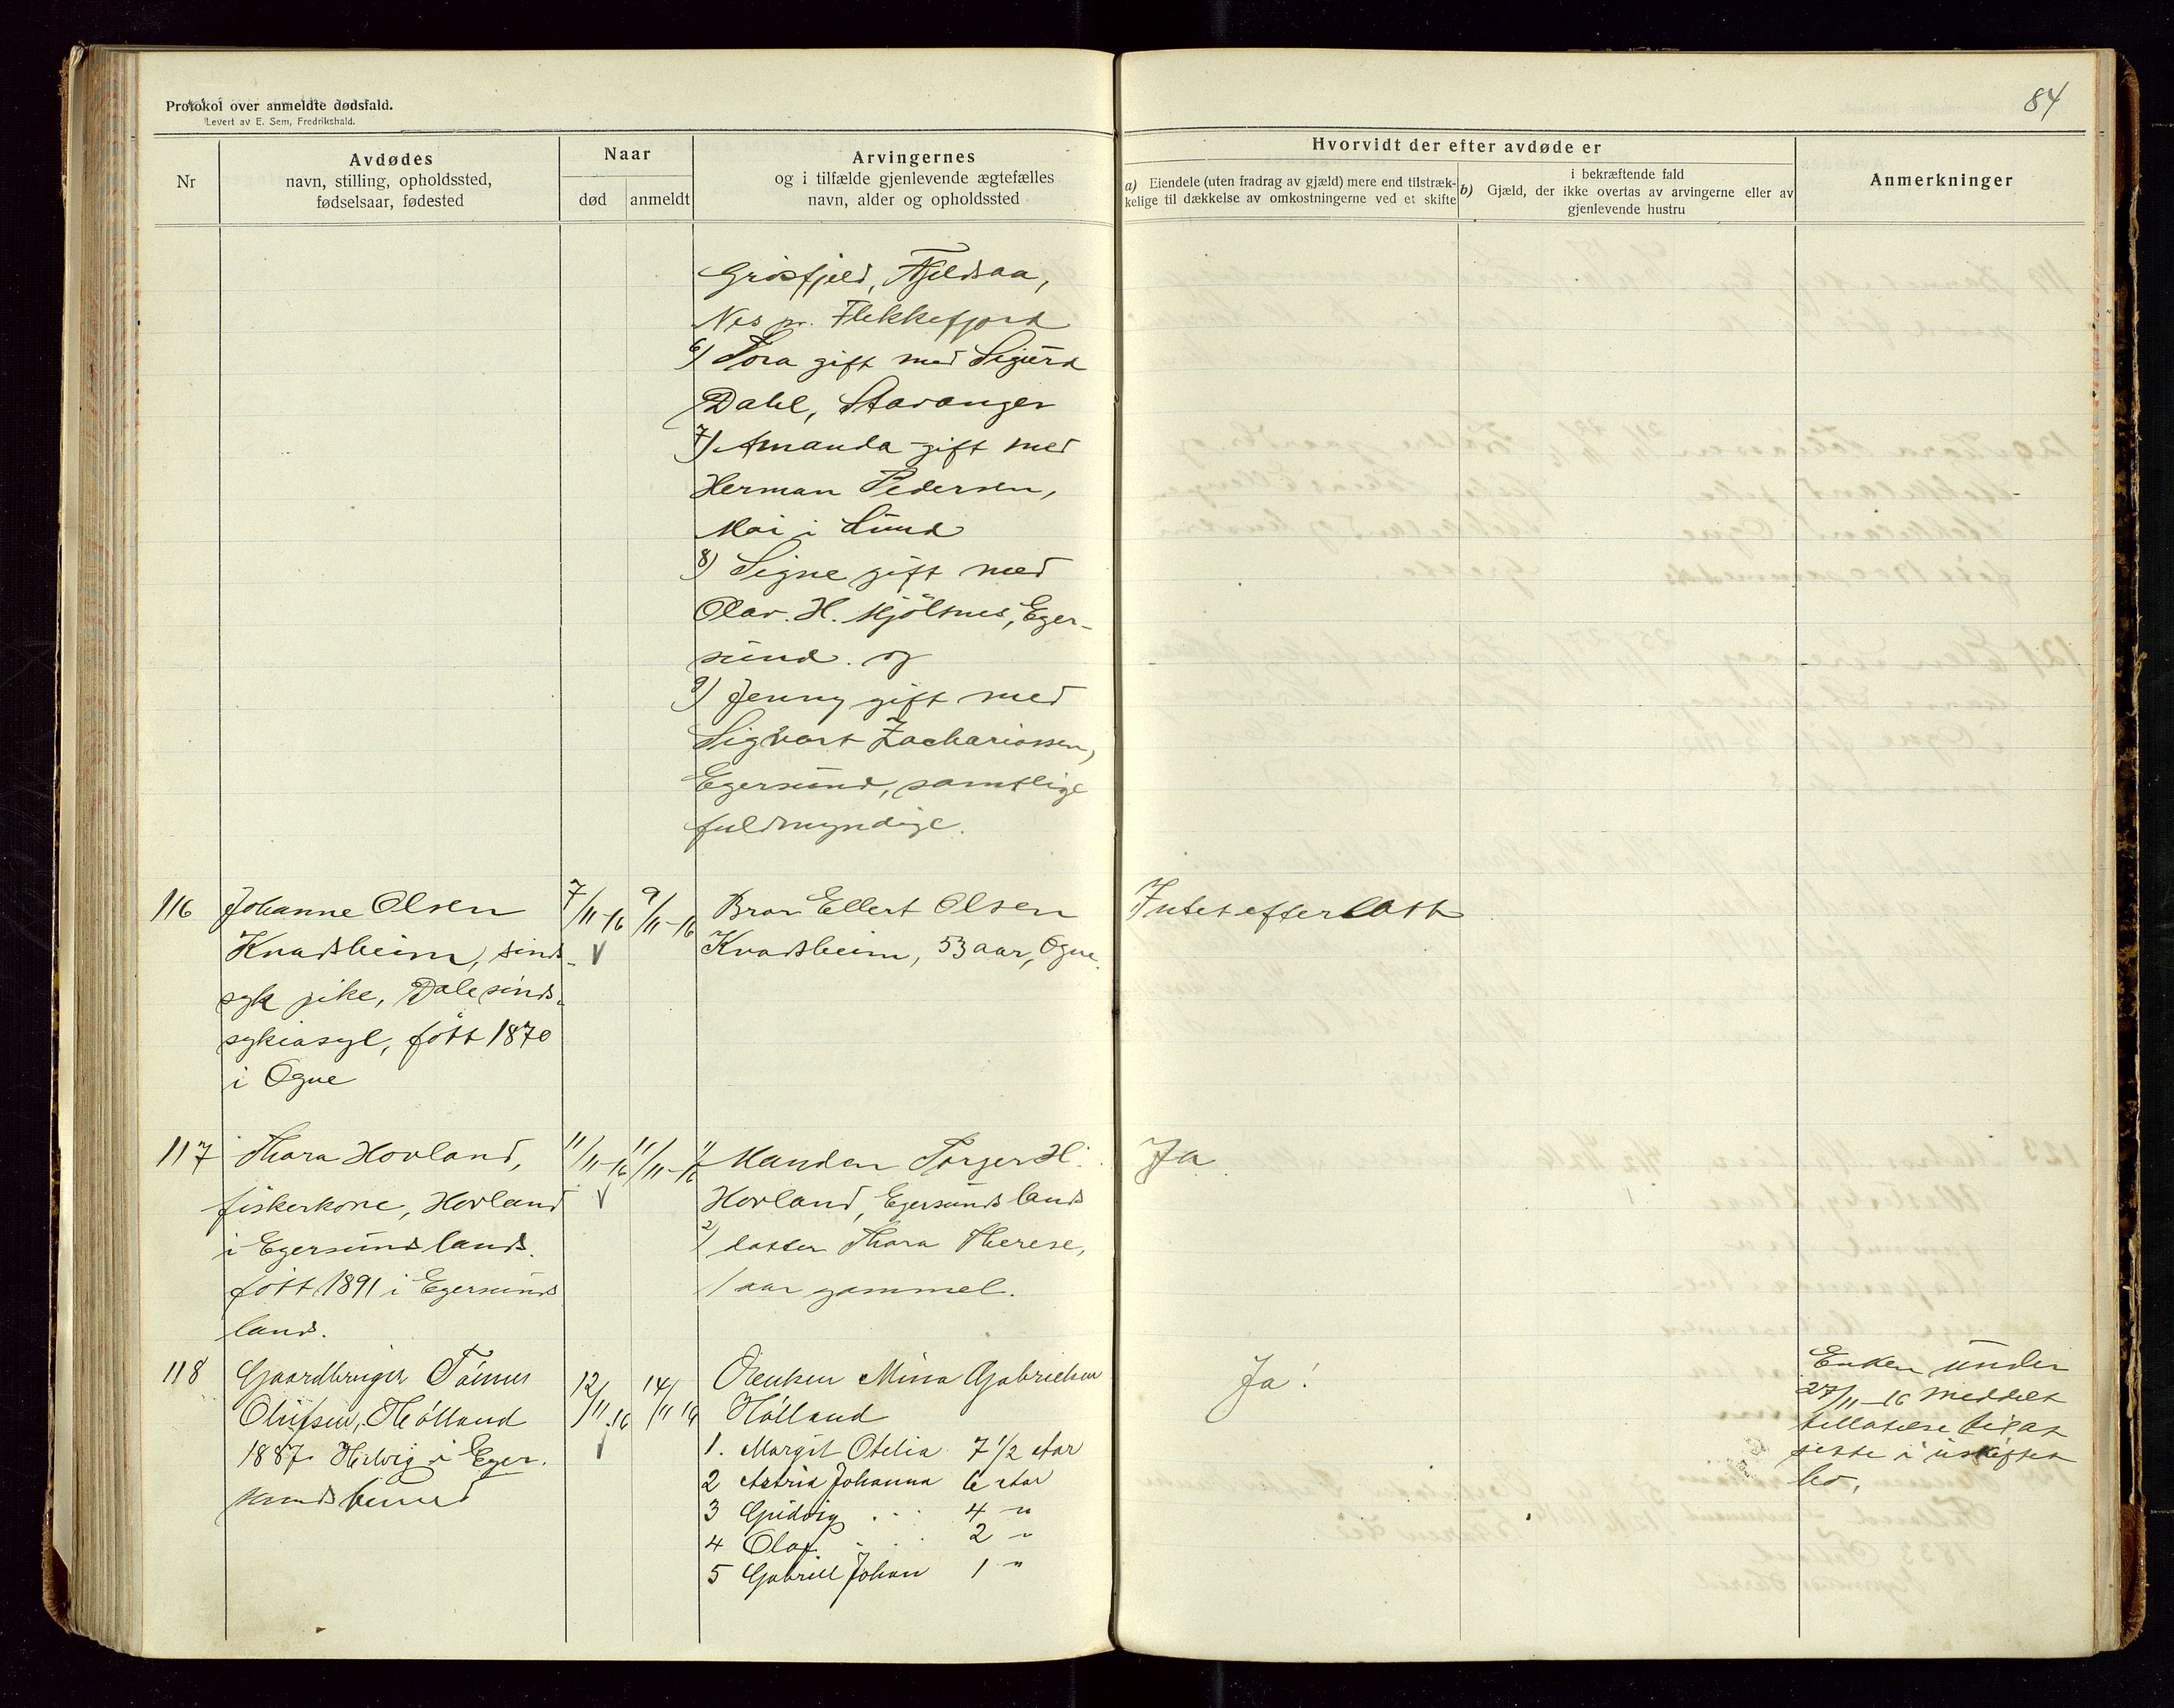 Protokol over anmeldte dødsfald.
Levert av E. Sem, Fredrikshald.
84
Nr
Avdødes
navn, stilling, opholdssted,
fødselsaar, fødested
Naar
død
anmeldt
Arvingernes
og i tilfælde gjenlevende ægtefælles
navn, alder og opholdssted
Hvorvidt der efter avdøde er
a) Eiendele (uten fradrag av gjæld) mere end tilstræk-
kelige til dækkelse av omkostningerne ved et skifte
i bekræftende fald
b) Gjæld, der ikke overtas av arvingerne eller av
gjenlevende hustru
Anmerkninger
Grösfjeld, Fjeldsaa,
Nes pr. Flekkefjord
6) Tora gift med Sigurd
Dahl, Stavanger
7) Amanda gift med
Herman Pedersen,
Moi i Lund
8) Signe gift med
Olav. H. Mjölsnes, Eger-
sund. og
9) Jenny gift med
Sigvart Zachariassen,
Egersund, samtlige
fuldmyndige.
116
Johanne Olsen
Kvadsheim, sind-
syk pike, Dale sinds-
sykeasyl, født 1870
i Ogne
7/11-16
9/11-16
Bror Ellert Olsen
Kvadsheim, 53 aar, Ogne.
Intet efterlatt
117
Thora Hovland,
fiskerkone, Hovland
i Egersunds lands.
født 1891 i Egersunds
lands.
11/11-16
11/11-16
1/ Manden Torger H.
Hovland, Egersunds lands
2/ datter Thora Therese,
1 aar gammel.
Ja
118
Gaardbruger Tönnes
Olufsen, Hölland
1887. Helvig i Eger.
sunds
12/11.16
14/11 16
Enken Mina Gabrielsen
Hölland
1. Margit Otelia 7 1/2 Aar
2 Astrid Johanna 6 Aar
3 Gudvig . . . 4 "
4 Olaf . . . 2 "
5 Gabriel Johan 1 "
Ja!
Enken under
27/11-16 meddelt
tillatelse til at
sitte i uskiftet
bo.